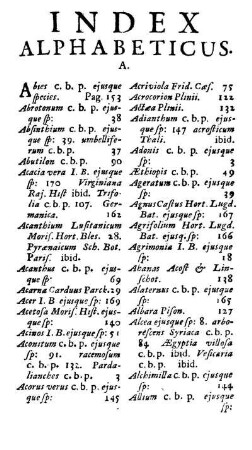 INDEX
ALPHABETICUS.
A.
Abies c. b. p. ejusque
species. Pag. 153
Abrotonum c. b. p. ejus
que sp: 38
Absinthium c. b. p. ejus
que sp: 39. umbellife-
rum c. b. p. 37
Abutilon c. b. p. 90
Acacia vera I. B. ejusque
sp: 170 Virginiana
Raj. Hist ibid. Trifo-
lia c. b. p. 107. Ger-
manica. 162
Acanthium Lusitanicum
Moris. Hort. Bles. 28.
Pyrænaicum Sch. Bot.
Paris. ibid.
Acanthus c. b. p. ejus-
que sp: 69
Acarna Carduus Parch. 29
Acer I. B ejusque sp: 169
Acetosa Moris. Hist. ejus-
que sp: 140
Acinos I. B. ejusque sp: 51
Aconitum c. b. p. ejusque
sp: 91. racemosum
c. b. p. 132. Parda-
lianches c. b. p. 3
Acorus verus c. b. p. ejus
que sp: 145
Acriviola Frid. Cæs. 75
Acrocorion Plinii. 122
Actæa Plinii. 132
Adianthum c. b. p. ejus-
que sp: 147 acrosticum
Thali. ibid.
Adonis c. b. p. ejusque
sp: 3
Æthiopis c. b. p. 49
Ageratum c. b. p. ejusque
sp: 39
AgnusCastus Hort. Lugd.
Bat. ejusque sp: 167
Agrifolium Hort. Lugd.
Bat. ejusq. sp: 166
Agrimonia I. B. ejusque
sp: 18
Ahanas Acost & Lin-
schot. 138
Alaternus c. b. p. ejusque
sp: 165
Albara Pison. 127
Alcea ejusque sp: 8. arbo-
rescens Syriaca c. b. p.
84 Ægyptia villosa
c. b. p. ibid. Vesicaria
c. b. p. ibid.
Alchimilla c. b. p. ejusque
sp: 144
Allium c. b. p. ejusque
sp: